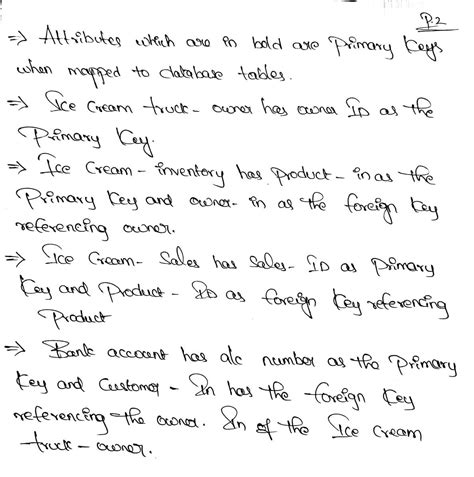 P.2
=> Attributes which are in bold are Primary Keys
when mapped to database tables.
=> Ice Cream truck - owner has owner ID as the
Primary Key.
=> Ice Cream - inventory has Product - in as the
Primary Key and owner - in as the foreign Key
referencing owner.
=> Ice Cream - Sales has Sales - ID as Primary
Key and Product - ID as foreign Key referencing
Product
=> Bank account has a/c number as the Primary
Key and Customer - In has the foreign Key
referencing the owner. In of the Ice Cream
truck - owner.